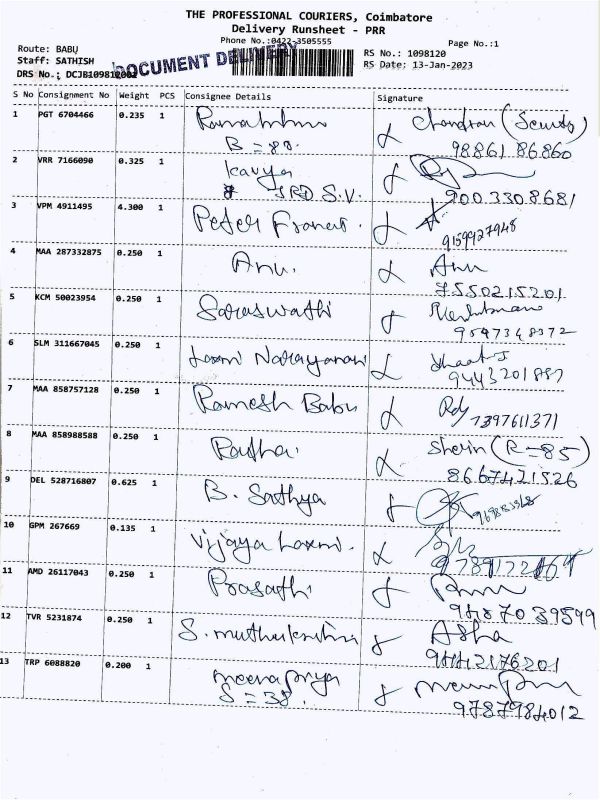 THE PROFESSIONAL COURIERS, Coimbatore
Delivery Runsheet - PRR
Phone No.:0422-3505555
Page No.:1
Route: BABU
Staff: SATHISH
DRS No.: DCJB109812002
DOCUMENT DELIVERY
RS No.: 1098120
RS Date: 13-Jan-2023
S No Consignment No Weight PCS Consignee Details Signature
1 PGT 6704466 0.235 1 Chandran (Security)
B = 80. 98861 86860
2 VRR 7166090 0.325 1 Kavya
S.V. 900 330 8681
3 VPM 4911495 4.300 1 Peter Francis.
9159927948
4 MAA 287332875 0.250 1 Anu. Anu
7550215201
5 KCM 50023954 0.250 1 Saraswathi
9547348372
6 SLM 311667045 0.250 1 Laxmi Narayanan
9443201887
7 MAA 858757128 0.250 1 Ramesh Babu
7397611371
8 MAA 858988588 0.250 1 Radha. Sherin (R=85)
8667421526
9 DEL 528716807 0.625 1 B. Sathya
10 GPM 267669 0.135 1 Vijaya Laxmi.
11 AMD 26117043 0.250 1 Prasath
9487039599
12 TVR 5231874 0.250 1 S. muthukrishna Asha
9442176201
13 TRP 6088820 0.200 1 meenapriya
S = 38. 9787984012